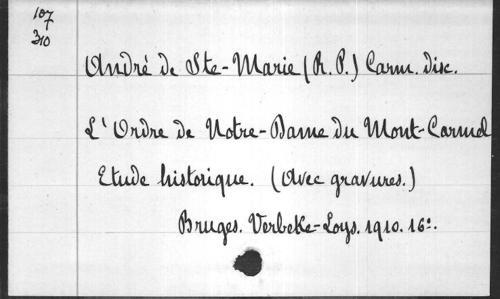 107
7
310
André de Ste-Marie (R. P.) Carm. disc.
L'Ordre de Notre-Dame du Mont-Carmel
Etude historique. (Avec gravures.)
Bruges. Verbeke-Loys. 1910. 16°.